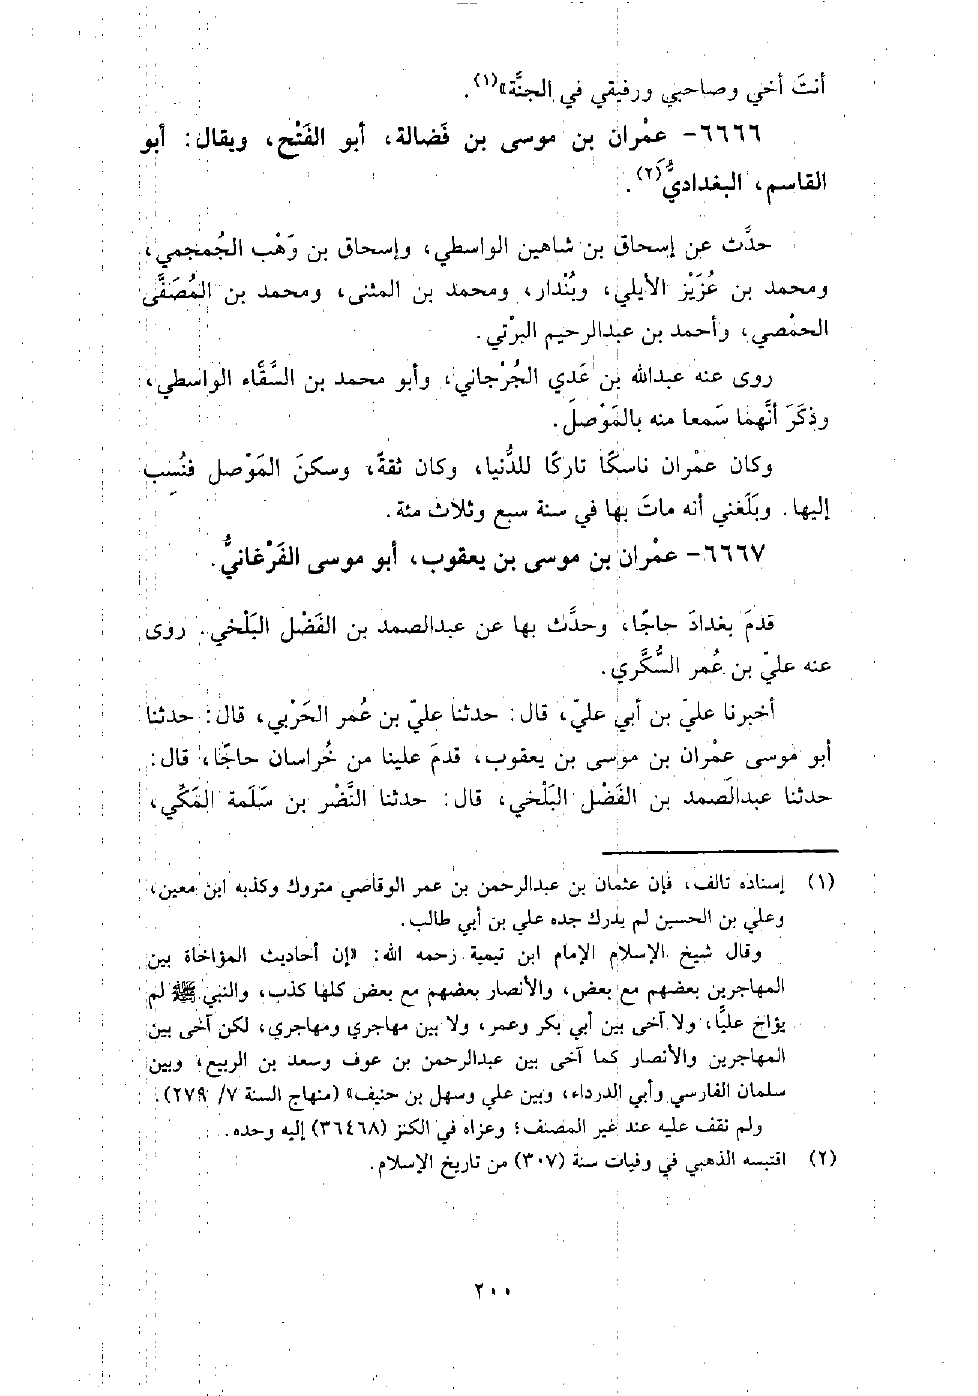 أنتَ أخي وصاحبي ورفيقي في الجنَّة»(١).
٦٦٦٦- عمْران بن موسى بن فَضالة، أبو الفَتْح، ويقال: أبو
القاسم، البغداديُّ(٢).
حدَّث عن إسحاق بن شاهين الواسطي، وإسحاق بن وَهْب الجُمجمي،
ومحمد بن عُزَيْز الأيلي، وبُنْدار، ومحمد بن المثنى، ومحمد بن المُصَفَّى
الحمْصي، وأحمد بن عبدالرحيم البرْتي.
روى عنه عبدالله بن عَدي الجُرْجاني، وأبو محمد بن السَّقَّاء الواسطي،
وذكَرَ أنَّهما سَمعا منه بالمَوْصل.
وكان عمْران ناسكًا تاركًا للدُّنيا، وكان ثقةً، وسكنَ المَوْصل فنُسِب
إليها. وبَلَغني أنه ماتَ بها في سنة سبع وثلاث مئة.
٦٦٦٧- عمْران بن موسى بن يعقوب، أبو موسى الفَرْغانيُّ.
قدمَ بغدادَ حاجًا، وحدَّث بها عن عبدالصمد بن الفَضْل البَلْخي. روى
عنه عليّ بن عُمر السُّكَّري.
أخبرنا عليّ بن أبي عليّ، قال: حدثنا عليّ بن عُمر الحَرْبي، قال: حدثنا
أبو موسى عمْران بن موسى بن يعقوب، قدمَ علينا من خُراسان حاجًّا، قال:
حدثنا عبدالصمد بن الفَضْل البَلْخي، قال: حدثنا النَّضْر بن سَلَمة المَكِّي،
(١) إسناده تالف، فإن عثمان بن عبدالرحمن بن عمر الوقاصي متروك وكذبه ابن معين،
وعلي بن الحسين لم يدرك جده علي بن أبي طالب.
وقال شيخ الإسلام الإمام ابن تيمية رحمه الله: «إن أحاديث المؤاخاة بين
المهاجرين بعضهم مع بعض، والأنصار بعضهم مع بعض كلها كذب، والنبي ﷺ لم
يؤاخ عليًّا، ولا آخى بين أبي بكر وعمر، ولا بين مهاجري ومهاجري، لكن آخى بين
المهاجرين والأنصار كما آخى بين عبدالرحمن بن عوف وسعد بن الربيع، وبين
سلمان الفارسي وأبي الدرداء، وبين علي وسهل بن حنيف» (منهاج السنة ٧/ ٢٧٩).
ولم نقف عليه عند غير المصنف؛ وعزاه في الكنز (٣٦٤٦٨) إليه وحده.
(٢) اقتبسه الذهبي في وفيات سنة (٣٠٧) من تاريخ الإسلام.
٢٠٠